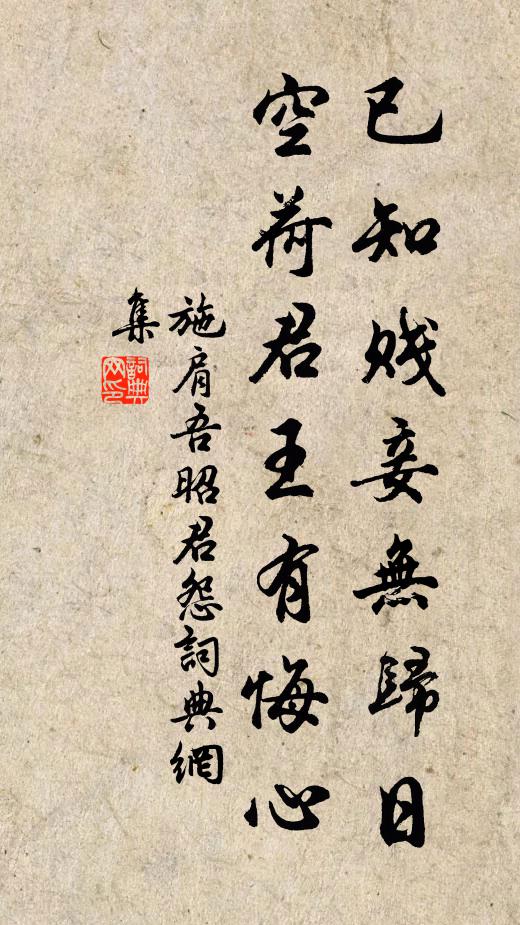 已知賤妾無歸日
空荷君王有悔心
施肩吾昭君怨詞典網
集
詞典
网印